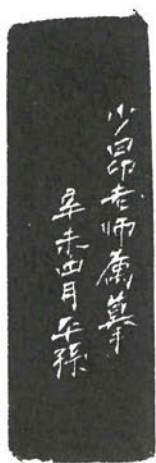 少昂老师属摹
辛未四月平孫